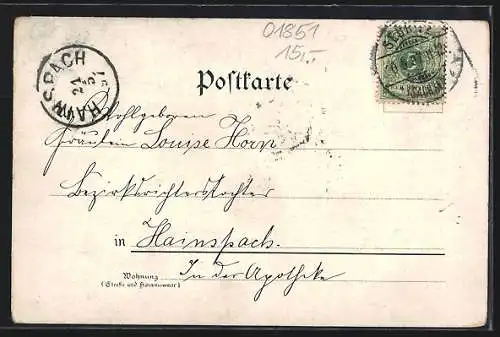 01851
15,-
Postkarte
HAINSPACH
Wohlgeboren
Fräulein Louise Horn
Bezirksrichterstochter
in Hainspach.
Wohnung In der Apotheke
(Straße und Hausnummer)